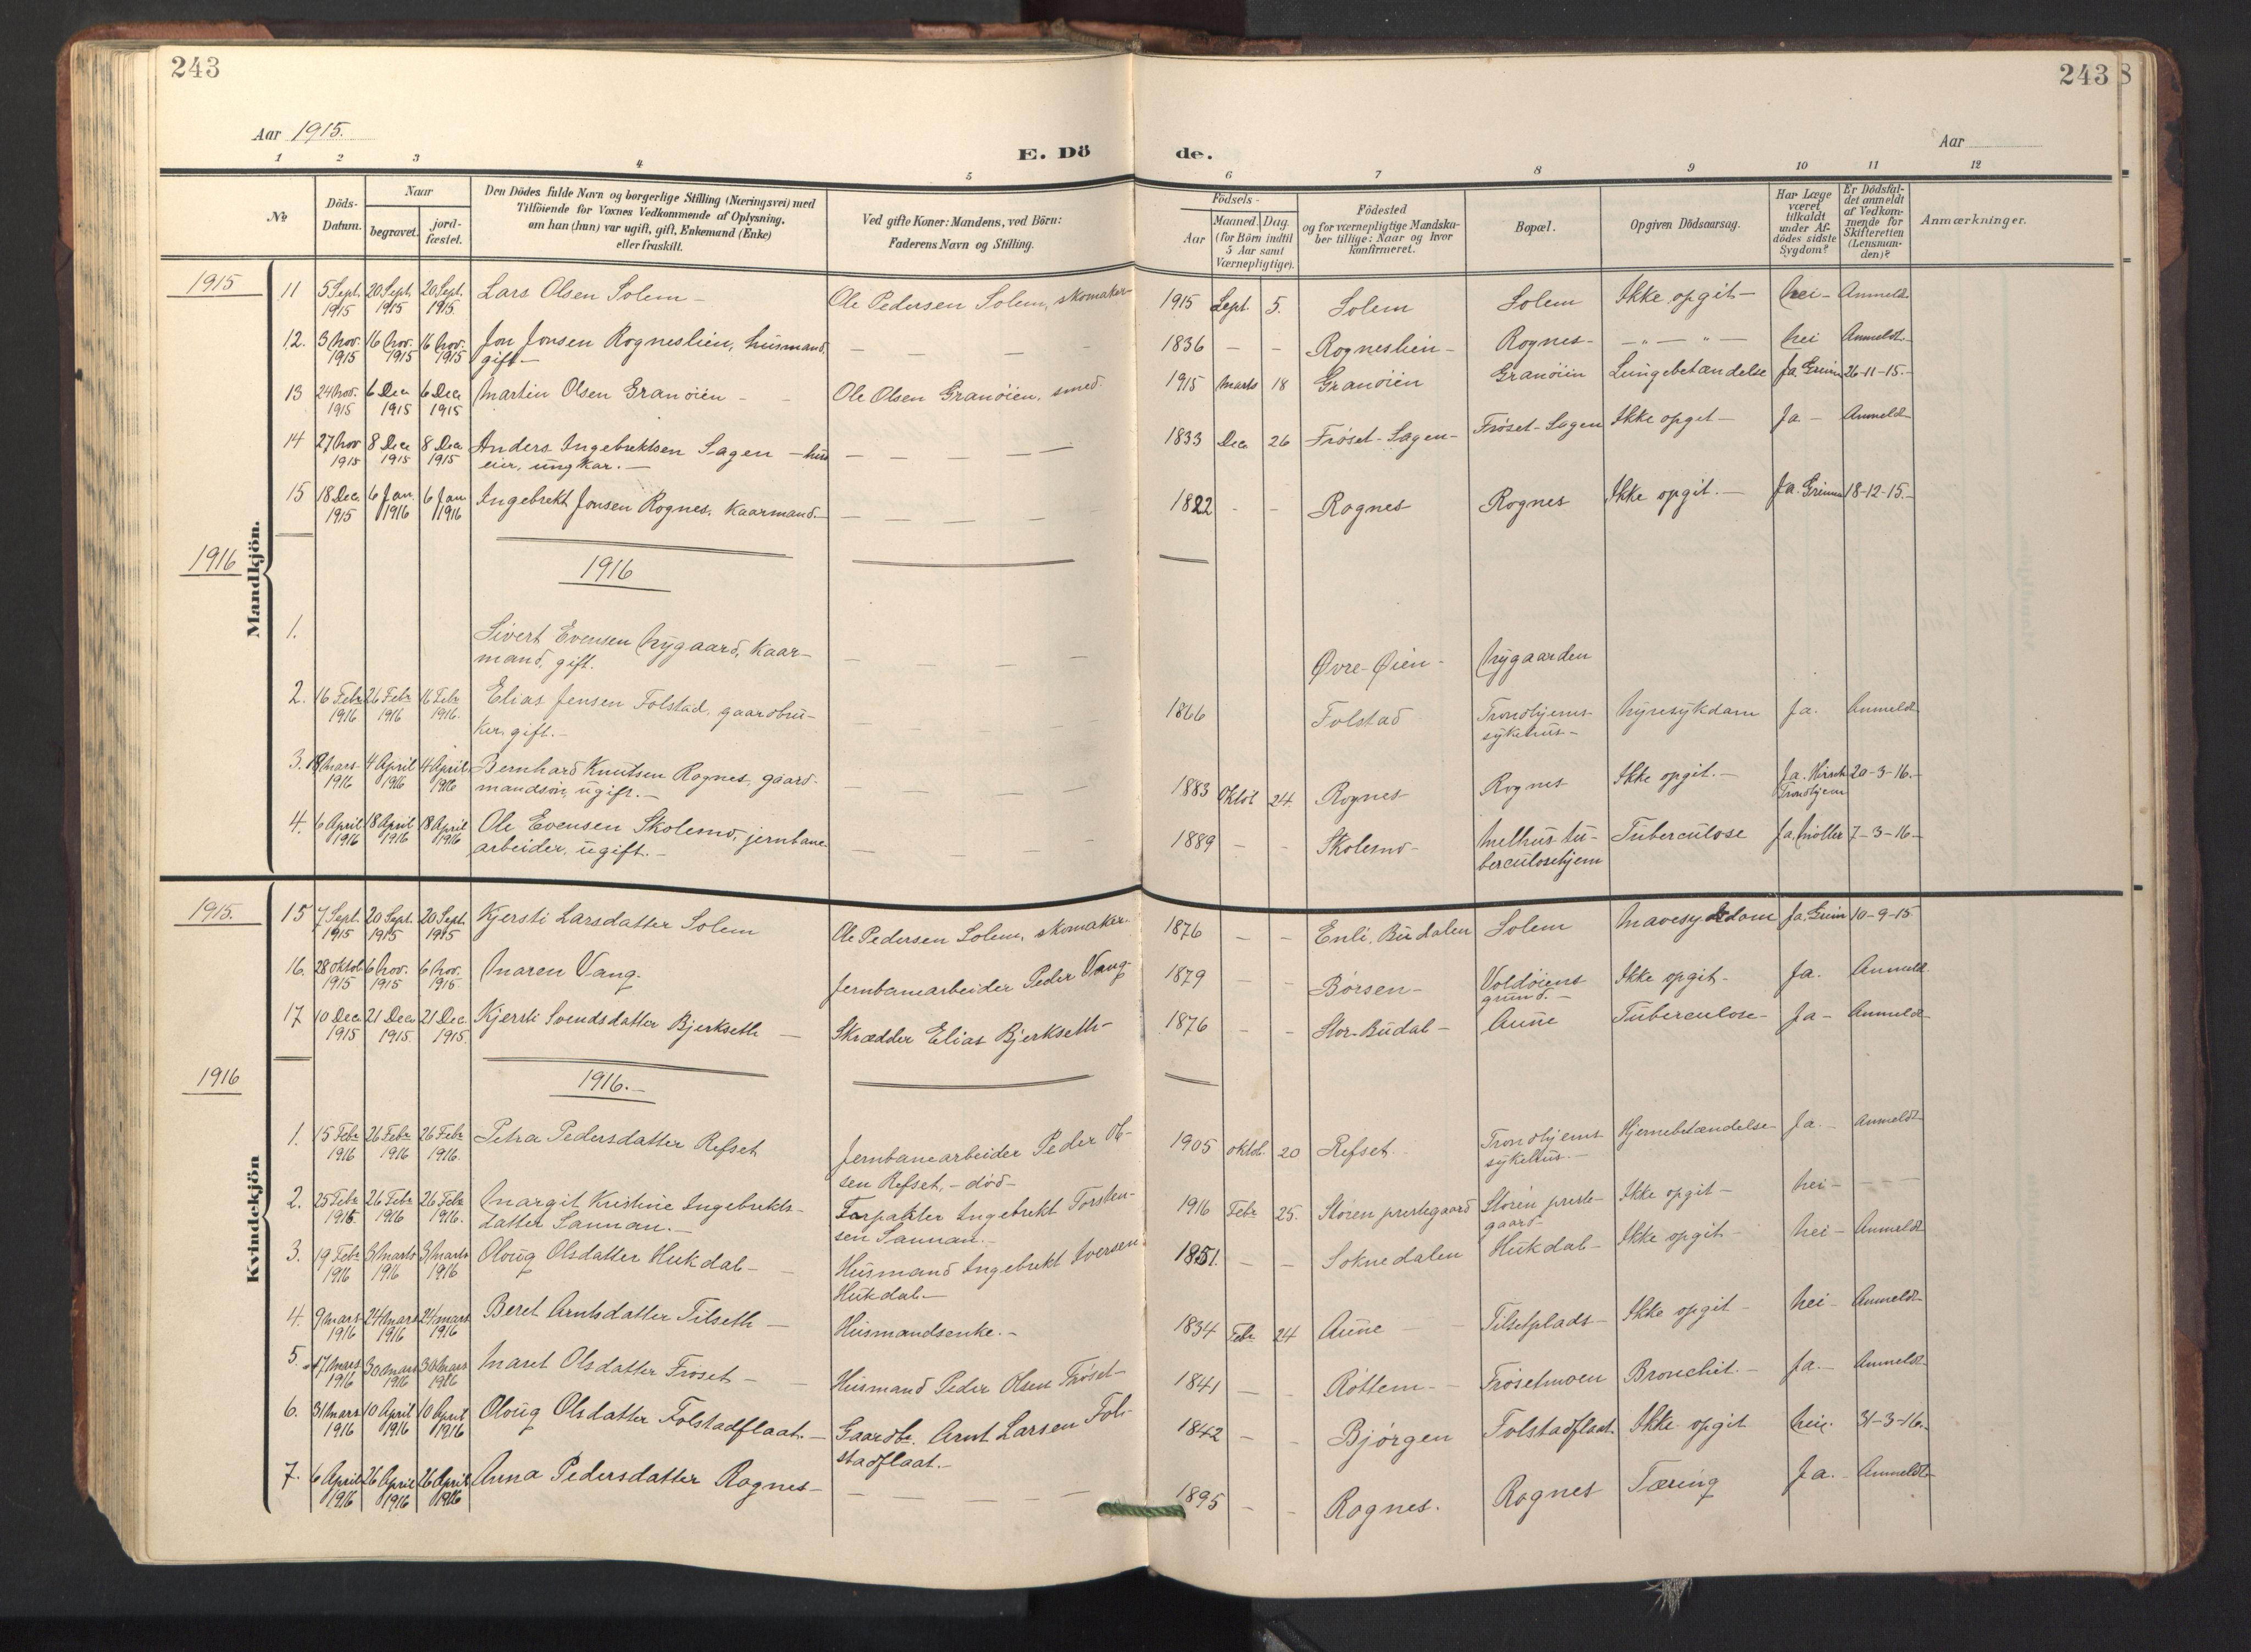 243
243
8
Aar 1915.
Aar
E. Dö
de.
1 2 3 4 5 6 7 8 9 10 11 12
No
Döds-
Datum.
Naar
begravet.
jord-
fæstet.
Den Dödes fulde Navn og borgerlige Stilling (Næringsvei) med
Tilföiende for Voxnes Vedkommende af Oplysning,
om han (hun) var ugift, gift, Enkemand (Enke)
eller fraskilt.
Ved gifte Koner: Mandens, ved Börn:
Faderens Navn og Stilling.
Födsels-
Aar
Maaned. Dag.
(for Börn indtil
5 Aar samt
Værnepligtige).
Födested
og for værnepligtige Mandska-
ber tillige: Naar og hvor
konfirmeret.
Bopæl.
Opgiven Dödsaarsag.
Har Læge
været
tilkaldt
under Af-
dödes sidste
Sygdom?
Er Dödsfal-
det anmeldt
af Vedkom-
mende for
Skifteretten
(Lensman-
den)?
Anmærkninger.
Mandkjön.
1915
11 5 Sept. 1915 20 Sept. 1915 20 Sept. 1915. Lars Olsen Solem – Ole Pedersen Solem, skomaker 1915 Sept. 5. Solem Solem Ikke opgit – Nei – Anmeldt
12. 3 Nov. 1915 16 Nov. 1915 16 Nov. 1915 Jon Jonsen Rogneslien, husmand, gift – — — — — 1836 – – Rogneslien – Rognes – –„– –„– Nei Anmeldt
13 24 Nov. 1915 6 Dec 1915 6 Dec 1915 Martin Olsen Granöien – – Ole Olsen Granöien, smed. 1915 Marts 18 Granöien Granöien Lungebetændelse Ja. Grimm 26-11-15.–
14 27 Nov 1915 8 Dec 1915 8 Dec 1915 Anders Ingebrektsen Sagen – hus
eier, ungkar. – — — — — — 1833 Dec 26 Fröset-Sagen – Fröset-Sagen Ikke opgit – Ja – Anmeldt
15 18 Dec. 1915 6 Jan. 1916 6 Jan 1916 Ingebrekt Jonsen Rognes, kaarmand. – — — — — 1822 – – Rognes Rognes Ikke opgit. – Ja. Grimm 18-12-15.–
1916
1916
1. Sivert Evensen Nygaard, kaar-
mand, gift. — — — — Øvre-Øien – Nygaarden
2. 16 Febr 1916 26 Febr 1916 16 Febr 1916. Elias Jensen Folstad, gaardbru-
ker, gift. – — — — — 1866 Folstad Trondhjems
sykehus – Nyresykdom Ja. Anmeldt
3. 18 Mars 1916 4 April 1916 4 April 1916 Bernhard Knutsen Rognes, gaard-
mandsön, ugift. – — — — — 1883 Oktob 24. Rognes Rognes Ikke opgit. – Ja. Hirsch
Trondhjem 20-3-16.–
4. 6 April 1916 18 April 1916 18 April 1916 Ole Evensen Skolemo, jernbane-
arbeider, ugift. – — — — — 1889 – – Skolemo – Melhus tu-
berculosehjem Tuberculose Ja. Möller 7-3-16–
Kvindekjön
1915.
15 7 Sept. 1915 20 Sept. 1915 20 Sept. 1915 Kjersti Larsdatter Solem Ole Pedersen Solem, skomaker. 1876 – – Enli, Budalen Solem Mavesykdom Ja. Grim 10-9-15
16. 28 Oktob 1915 6 Nov. 1915 6 Nov. 1915. Maren Vang. Jernbanearbeider Peder Vang – 1879 – – Börsen – Voldöiens
grund. – Ikke opgit – Ja. Anmeldt
17 10 Dec 1915 21 Dec 1915. 21 Dec. 1915. Kjersti Svendsdatter Bjerkseth – Skrædder Elias Bjerkseth – 1876 – – Stor-Budal – Aune Tuberculose – Ja – Anmeldt
1916
1916. –
1. 15 Febr 1916 26 Febr 1916 26 Febr 1916. Petra Pedersdatter Refset Jernbanearbeider Peder Ol-
sen Refset, – död – 1905 Oktob. 20 Refset Trondhjems
sykehus. – Hjernebetændelse – Ja. – Anmeldt
2. 25 Febr 1916. 26 Febr 1916 26 Febr 1916. Margit Kristine Ingebrekts-
datter Sannan. – Forpakter Ingebrekt Torsten-
sen Sannan. – 1916 Febr 25. Stören prestegaard Stören preste-
gaard Ikke opgit – Nei – – – –
3. 19 Febr 1916 3 Marts 1916 3 Marts 1916 Oloug Olsdatter Hukdal – – Husmand Ingebrekt Iversen
Hukdal – 1851. – – Soknedalen Hukdal – Ikke opgit – Nei – Anmeldt
4. 9 Mars 1916 24 Mars 1916 24 Mars 1916 Beret Arntsdatter Tilseth – Husmandsenke. – 1834 Febr 24 Aune – – Tilsetplads – Ikke opgit – Nei – Anmeldt
5. 17 Mars 1916 30 Mars 1916 30 Mars 1916 Maret Olsdatter Fröset – – Husmand Peder Olsen Fröset – 1841 – – Röttem – – Frösetmoen Bronchit. – Ja. – Anmeldt
6. 31 Mars 1916 10 April 1916 10 April 1916 Oloug Olsdatter Folstadflaat. – Gaardbr. Arnt Larsen Fol-
stadflaat. – 1842 – – Bjørgen Folstadflaat. Ikke opgit Nei. 31-3-16.
7. 6 April 1916 26 April 1916 26 April 1916 Anna Pedersdatter Rognes – — — — — — 1895 – – Rognes. Rognes Tæring Ja. – Anmeldt –